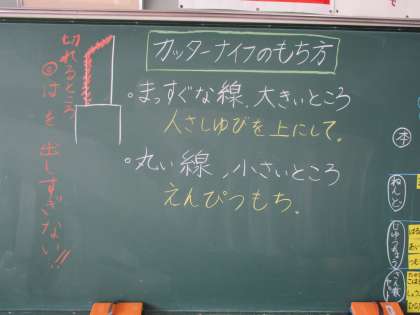 カッターナイフのもち方
切れるところ
◎はを出しすぎない!!
○まっすぐな線、大きいところ
人さしゆびを上にして。
○丸い線、小さいところ
えんぴつもち。
本
ねんど